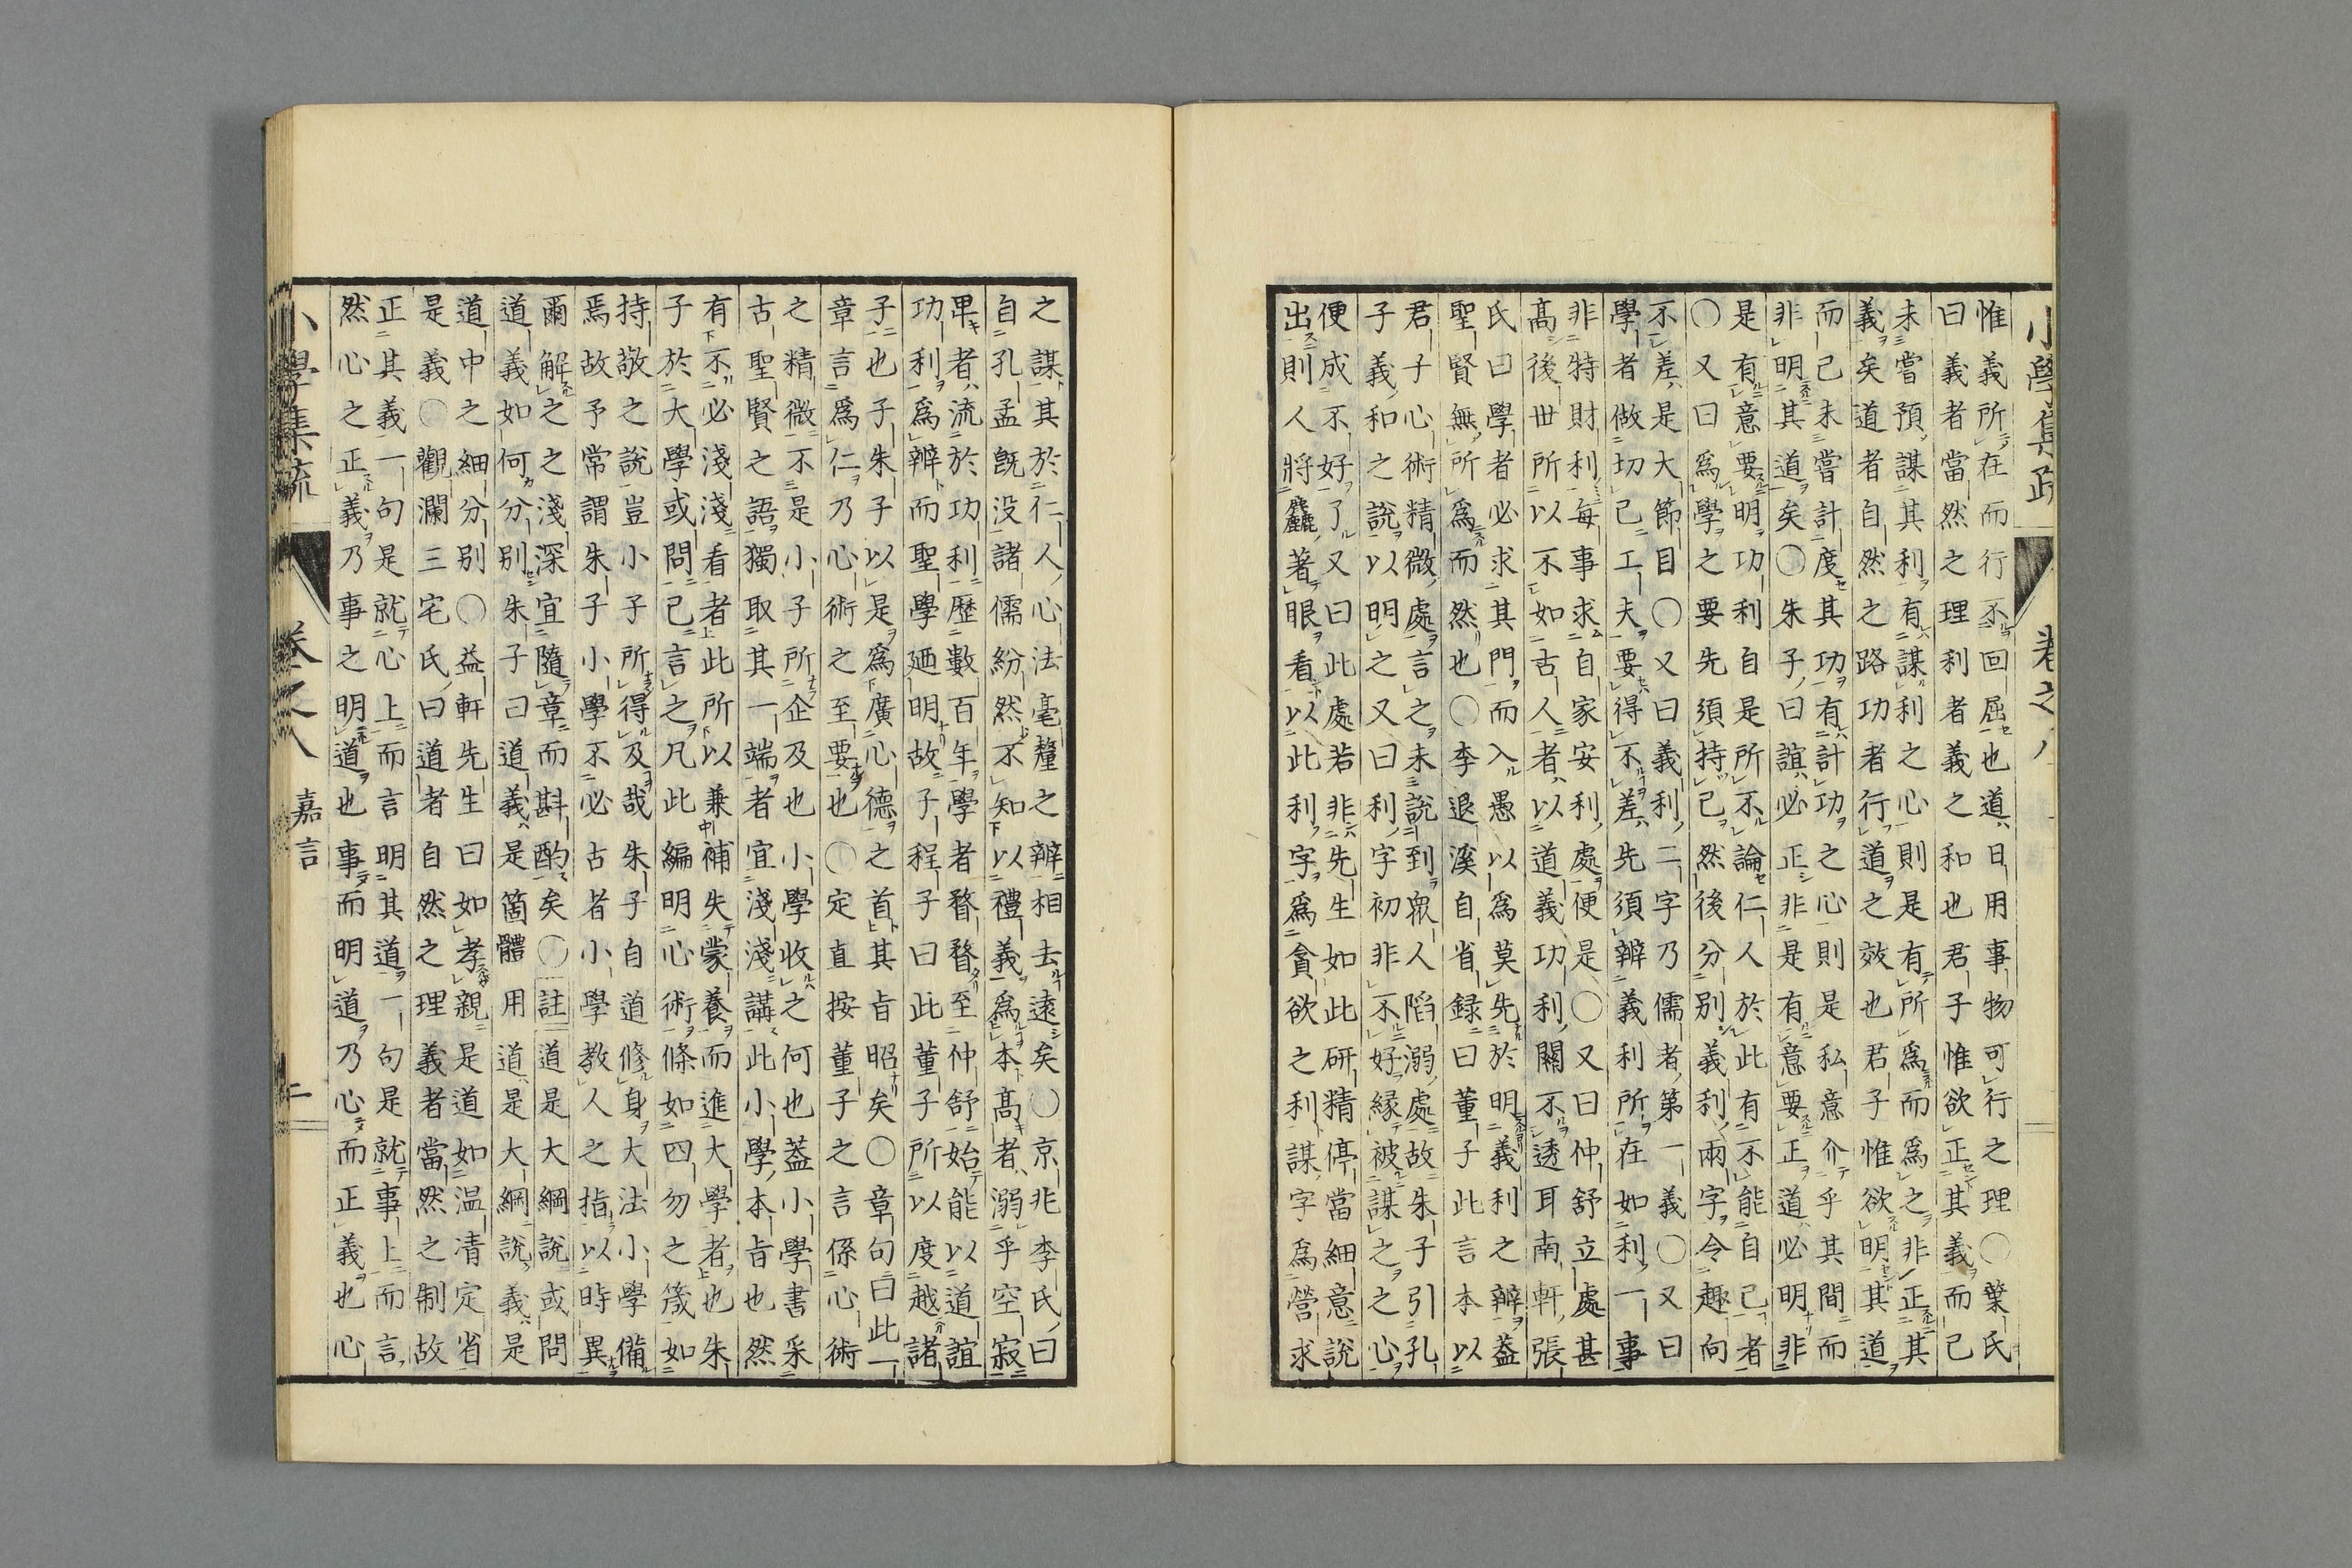 惟義所在而行不回屈也道日用事物可行之理〇葉氏
曰義者當然之理利者義之和也君子惟欲正其義而已
未嘗預謀其利有謀利之心則是有所爲而爲之非正其
義矣道者自然之路功者行道之效也君子惟欲明其道
而已未嘗計度其功有計功之心則是私意介乎其間而
非明其道矣〇朱子曰誼必正非是有意要正道必明非
是有意要明功利自是所不論仁人於此有不能自已者
〇又曰爲學之要先須持己然後分別義利兩字令趣向
不差是大節目〇又曰義利二字乃儒者第一義〇又曰
學者做切己工夫要得不差先須辨義利所在如利一事
非特財利每事求自家安利處便是〇又曰仲舒立處甚
高後世所以不如古人者以道義功利關不透耳南軒張
氏曰學者必求其門而入愚以爲莫先於明義利之辨蓋
聖賢無所爲而然也〇李退溪自省録曰董子此言本以
君子心術精微處言之未說到衆人陷溺處故朱子引孔
子義和之說以明之又曰利字初非不好緣被謀之之心
便成不好了又曰此處若非先生如此研精停當細意說
出則人將麤著眼看以此利字爲貪欲之利謀字爲營求
之謀其於仁人心法毫釐之辨相去遠矣〇京非李氏曰
自孔孟既没諸儒紛然不知以禮義爲本高者溺乎空寂
卑者流於功利歷數百年學者瞀瞀至仲舒始能以道誼
功利爲辨而聖學廼明故子程子曰此董子所以度越諸
子也子朱子以是爲廣心德之首其旨昭矣〇章句曰此一
章言爲仁乃心術之至要也〇定直按董子之言係心術
之精微不是小子所企及也小學收之何也蓋小學書采
古聖賢之語獨取其一端者宜淺淺講此小學本旨也然
有不必淺淺看者此所以兼補失蒙養而進大學者也朱
子於大學或問已言之凡此編明心術條如四勿之箴如
持敬之說豈小子所得及哉朱子自道修身大法小學備
焉故予常謂朱子小學不必古者小學教人之指以時異
爾解之之淺深宜隨章而斟酌矣〇註道是大綱說或問
道義如何分別朱子曰道義是箇體用道是大綱說義是
道中之細分別〇益軒先生曰如孝親是道如温凊定省
是義〇觀瀾三宅氏曰道者自然之理義者當然之制故
正其義一句是就心上而言明其道一句是就事上而言
然心之正義乃事之明道也事而明道乃心而正義也心
小學集疏
卷之八
嘉言